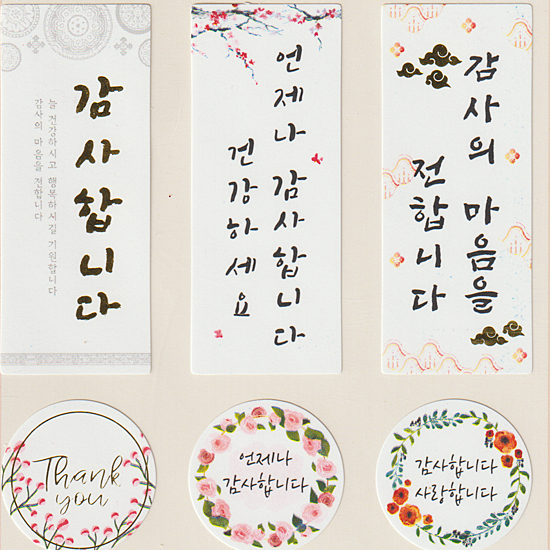 감사합니다
늘 건강하시고 행복하시길 기원합니다
감사의 마음을 전합니다
언제나 감사합니다
건강하세요
감사의 마음을
전합니다
Thank
you
언제나
감사합니다
감사합니다
사랑합니다